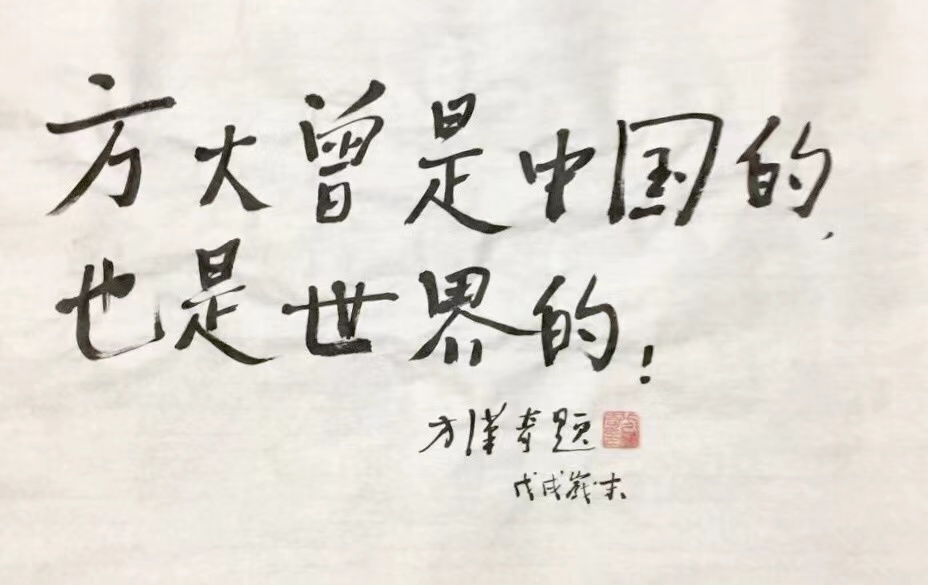 方大曾是中国的,
也是世界的!
方漢奇题
戊戌歲末